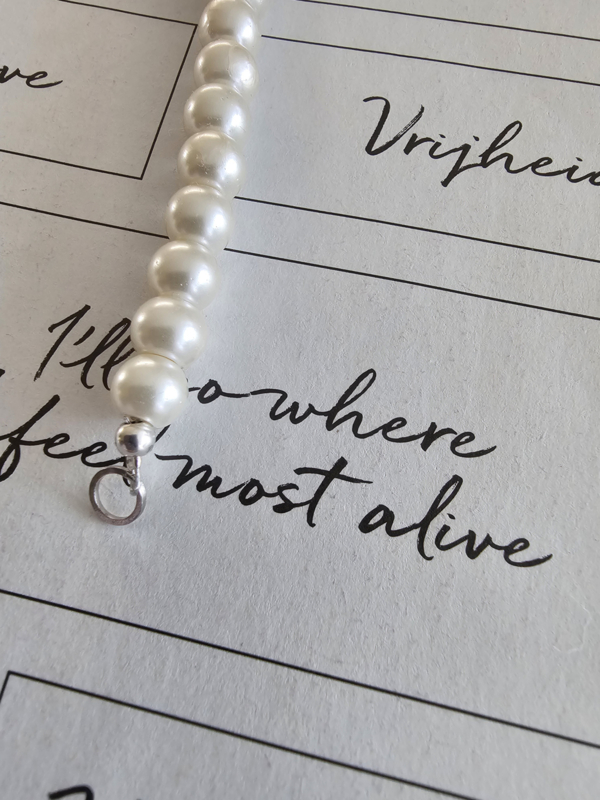 Vrijheid
I'll go where
feel most alive